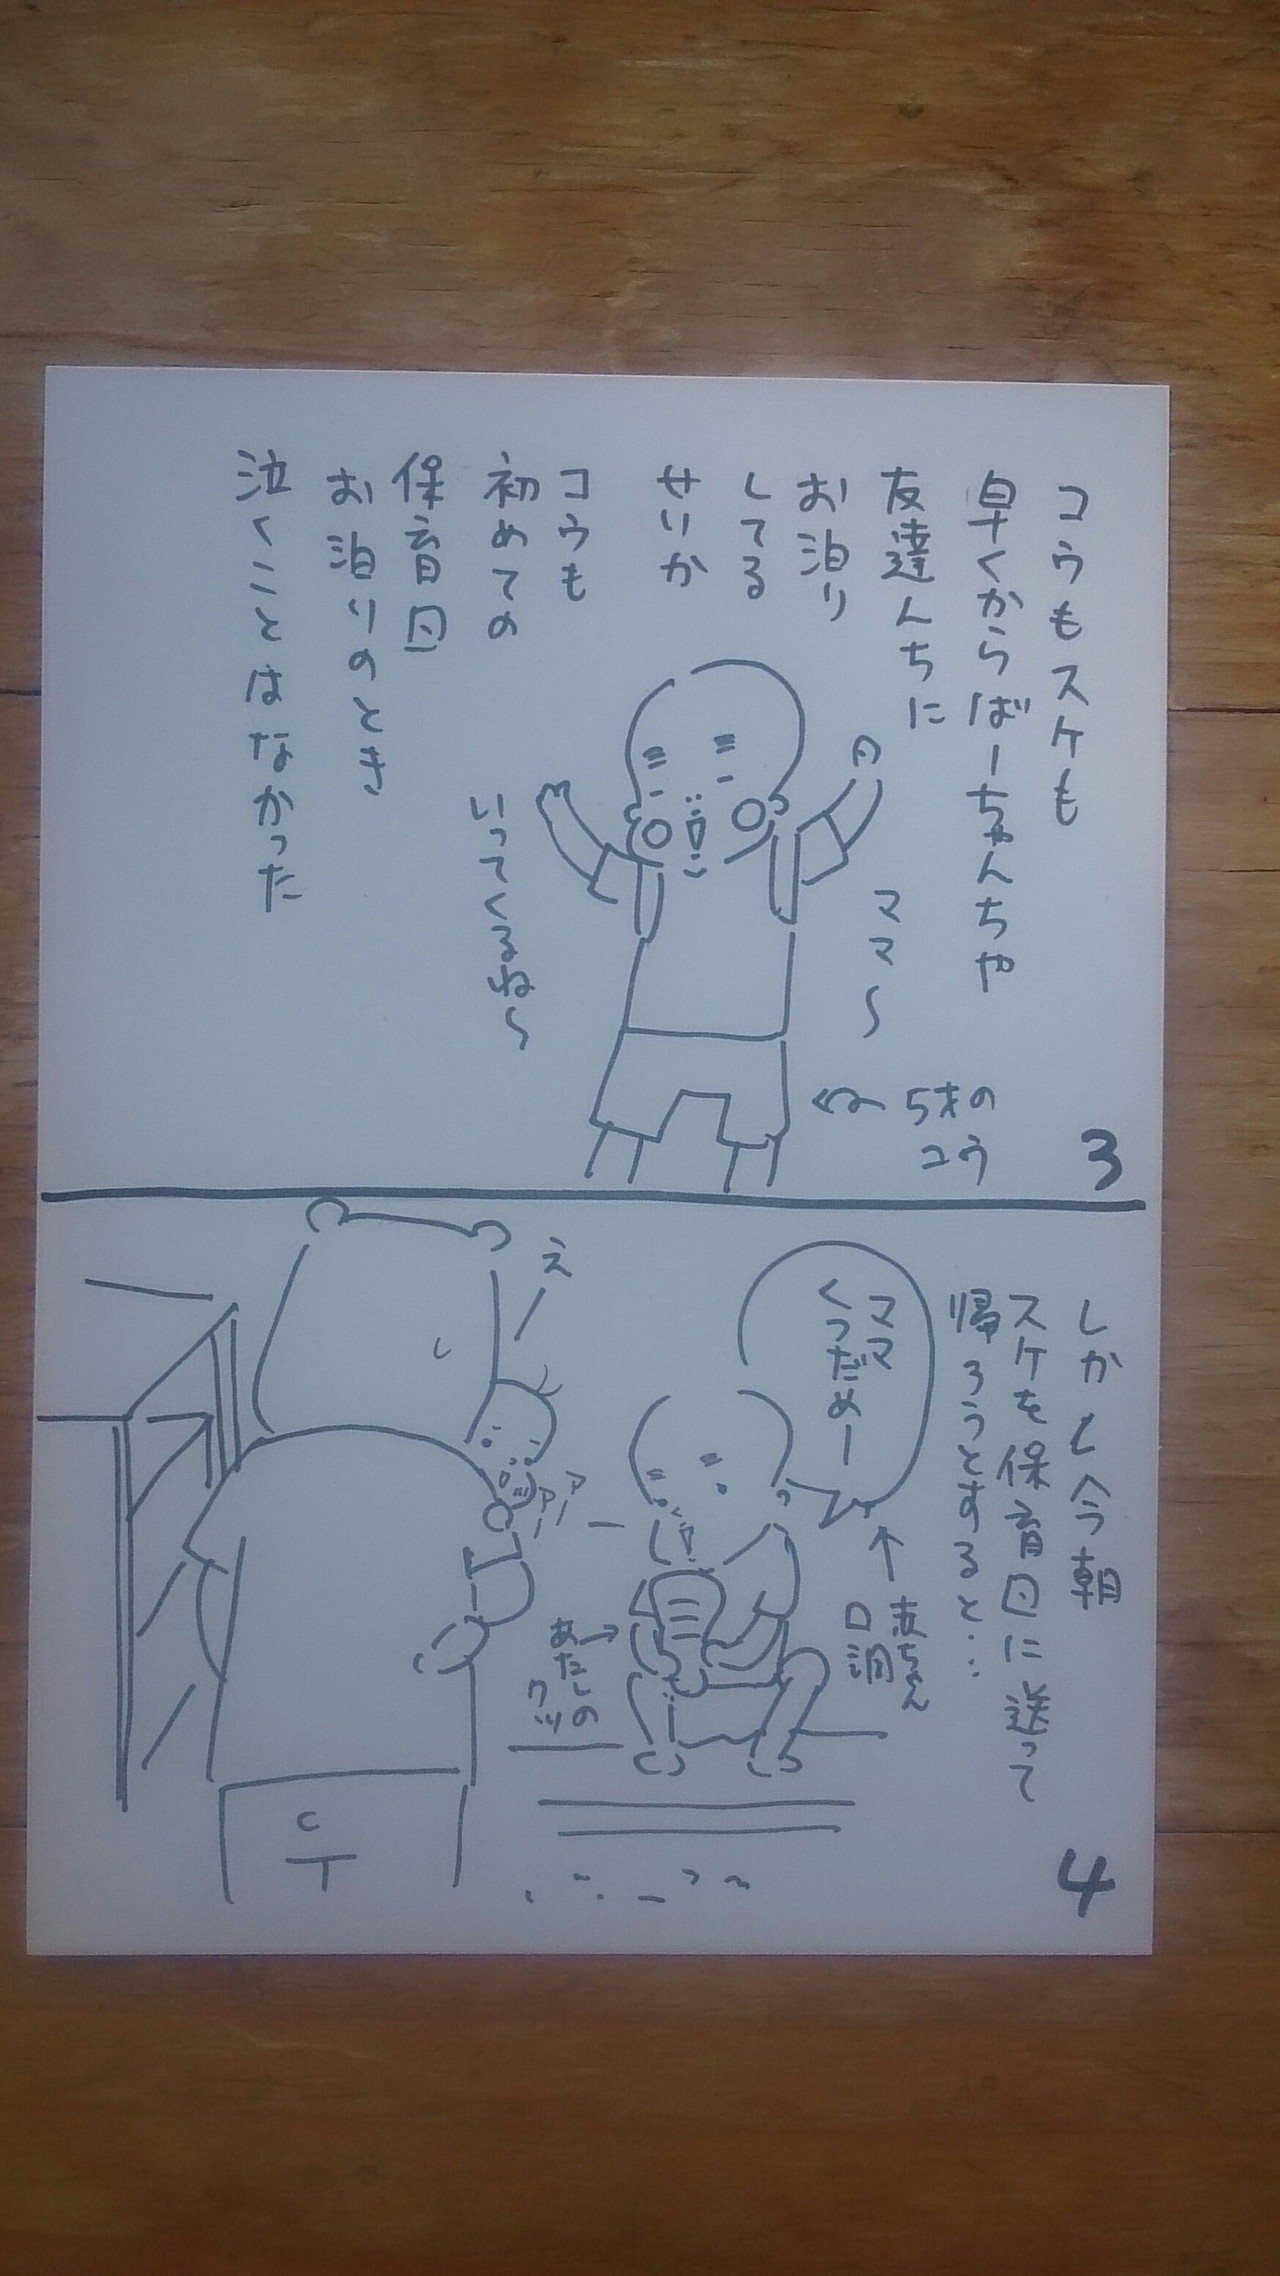 コウもスケも
早くからばーちゃんちや
友達んちに
お泊り
してる
せいか
コウも
初めての
保育園
お泊りのとき
泣くことはなかった
ママ〜
いってくるね〜
5才の
コウ
3
しかし今朝
スケを保育園に送って
帰ろうとすると…
ママ
くつだめー
赤ちゃん
口調
え
アーアー
あたしの
クツ
4